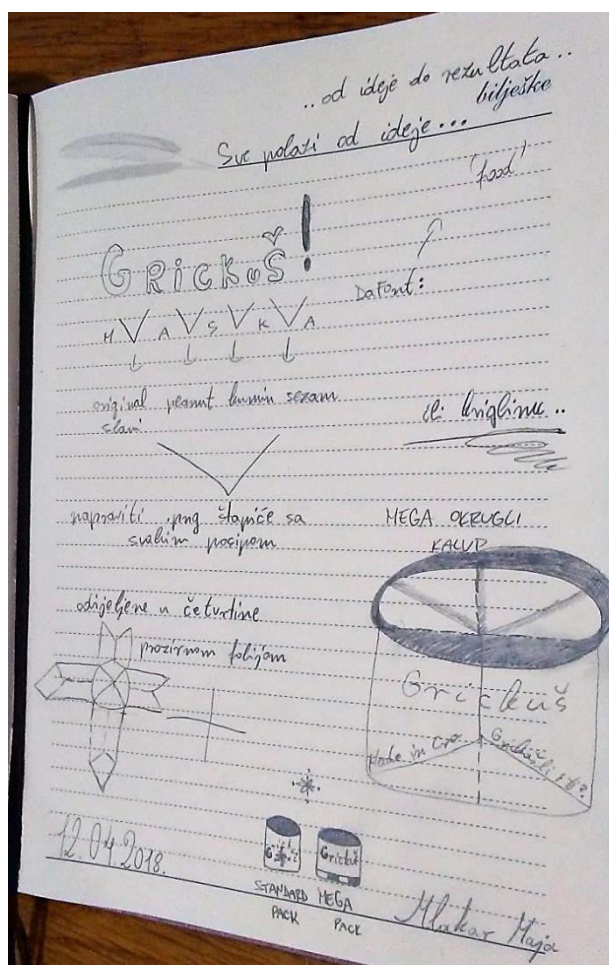 ..od ideje do rezultata..
bilješke
Sve polazi od ideje...
'food'
GRickuŠ!
DaFont:
H V A V S V K V A
original peanut kumin sezam
slani
ili kriglinu..
napraviti .png štapiće sa
svakim posipom
MEGA OKRUGLI
KALUP
odijeljene u četvrtine
prozirnom folijom
Grickuš
Made in Cro.
12.04.2018.
Grickuš
STANDARD
PACK
MEGA
PACK
Mlakar Maja